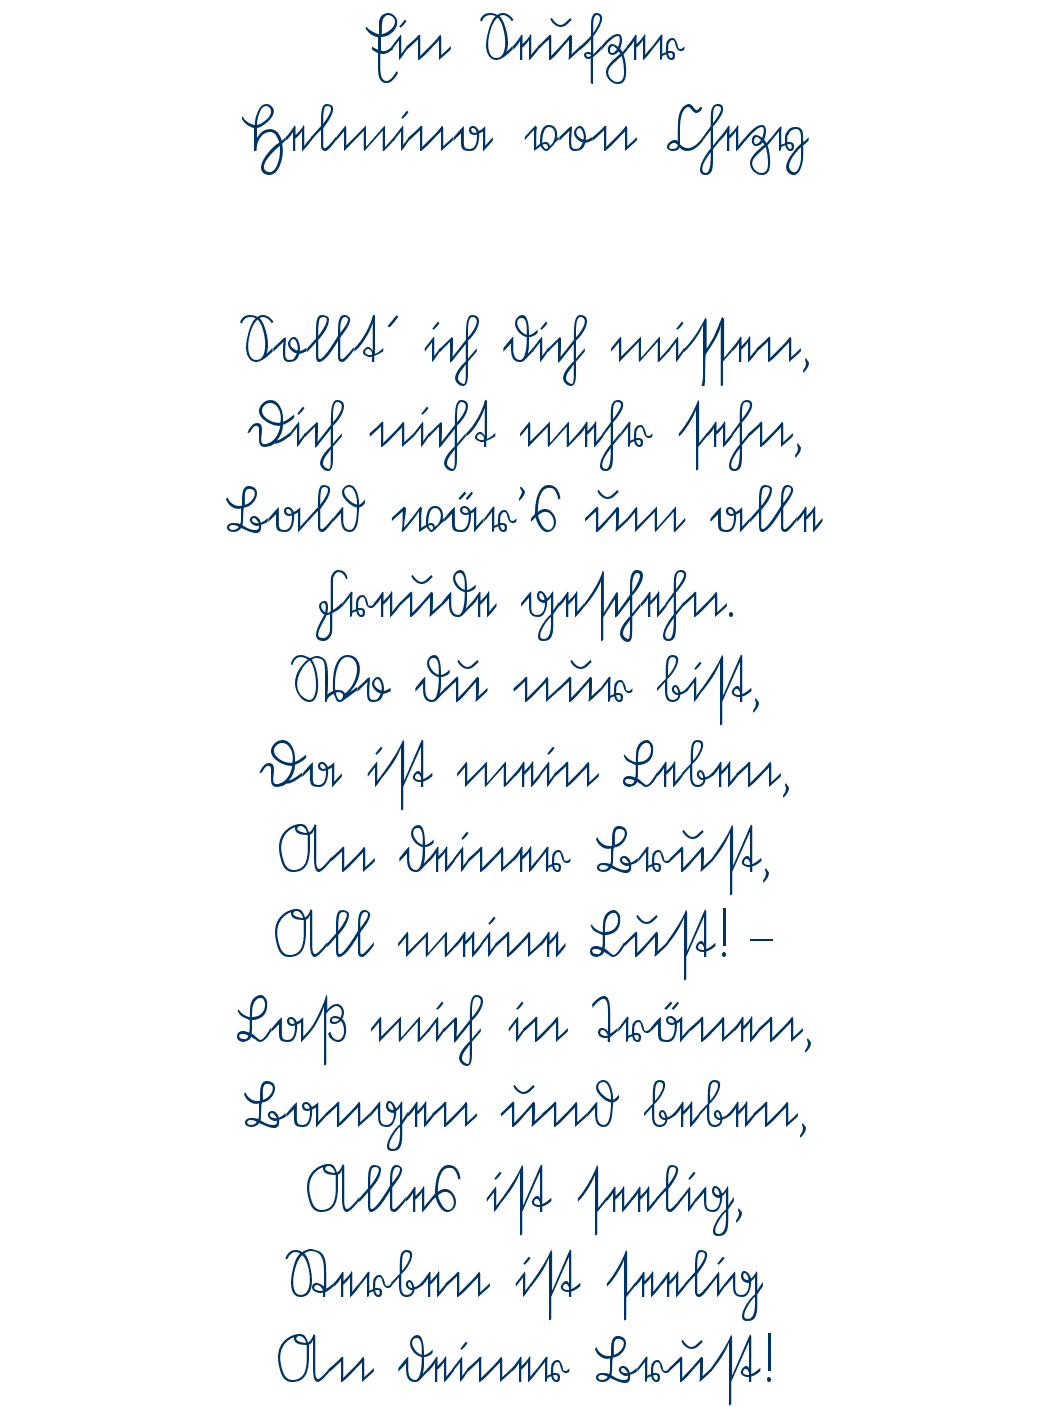 Ein Seufzer
Helmina von Chezy
Sollt´ ich dich missen,
Dich nicht mehr sehn,
Bald wär's um alle
Freude geschehn.
Wo du nur bist,
Da ist mein Leben,
An deiner Brust,
All meine Lust! –
Laß mich in Tränen,
Bangen und beben,
Alles ist seelig,
Sterben ist seelig
An deiner Brust!